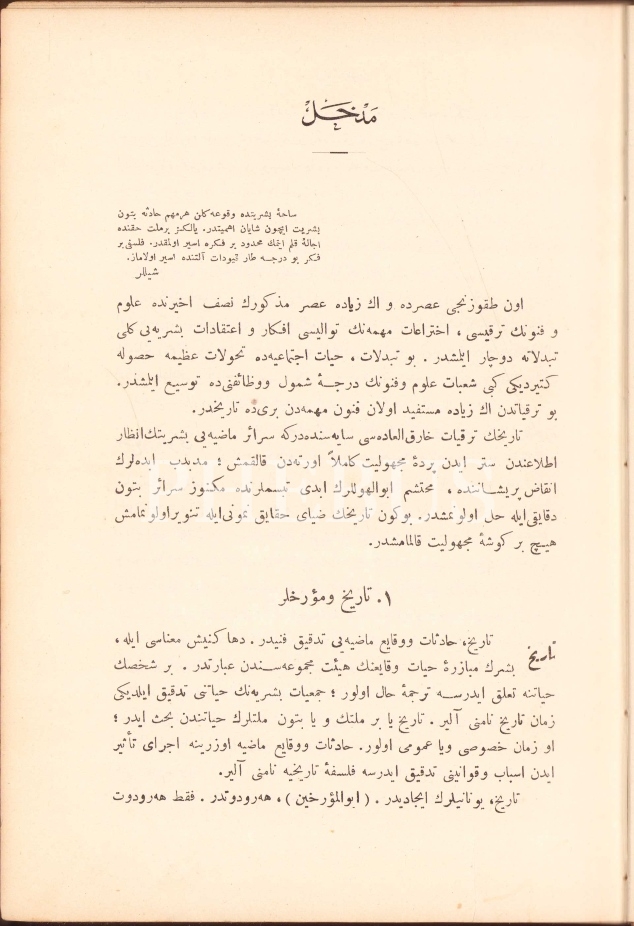 مَدْخَلْ
ساحهٔ بشريتده وقوعه كلن هر مهم حادثه بتون
بشريت ايچون شايان اهميتدر. يالكز بر ملت حقنده
اجالهٔ قلم ايتمك محدود بر فكره اسير اولمقدر. فلسفى بر
فكر بو درجه طار قيودات آلتنده اسير اولاماز.
شيللر
اون طقوزنجى عصرده و اك زياده عصر مذكورك نصف اخيرنده علوم
و فنونك ترقيسى ، اختراعات مهمه‌نك تواليسى افكار و اعتقادات بشريه‌يى كلى
تبدلاته دوچار ايلمشدر . بو تبدلات ، حيات اجتماعيه‌ده تحولات عظيمه حصوله
كتيرديكى كبى شعبات علوم وفنونك درجهٔ شمول ووظائفنى ده توسيع ايلمشدر.
بو ترقياتدن اك زياده مستفيد اولان فنون مهمه‌دن برى ده تاريخدر.
تاريخك ترقيات خارق‌العاده‌سى سايه‌سنده‌دركه سرائر ماضيه‌يى بشريتك انظار
اطلاعندن ستر ايدن پردهٔ مجهوليت كاملاً اورته‌دن قالقمش ؛ مذبذب ابده‌لرك
انقاض پريشاننده ، محتشم ابوالهوللرك ابدى تبسملرنده مكنوز سرائر بتون
دقايقى‌ايله حل اولونمشدر. بوكون تاريخك ضياى حقايق نمونى‌ايله تنوير اولونمامش
هيچ بر كوشهٔ مجهوليت قالمامشدر.
١. تاريخ ومؤرخلر
تاريخ
تاريخ، حادثات ووقايع ماضيه‌يى تدقيق فنيدر. دها كنيش معناسى ايله ،
بشرك مبارزهٔ حيات وقايعنك هيئت مجموعه‌سندن عبارتدر . بر شخصك
حياتنه تعلق ايدرسه ترجمهٔ حال اولور ؛ جمعيات بشريه‌نك حياتنى تدقيق ايلديكى
زمان تاريخ نامنى آلير . تاريخ يا بر ملتك و يا بتون ملتلرك حياتندن بحث ايدر ؛
او زمان خصوصى ويا عمومى اولور. حادثات ووقايع ماضيه اوزرينه اجراى تأثير
ايدن اسباب وقوانينى تدقيق ايدرسه فلسفهٔ تاريخيه نامنى آلير.
تاريخ، يونانيلرك ايجاديدر . (ابوالمؤرخين) ، هه‌رودوتدر . فقط هه‌رودوت